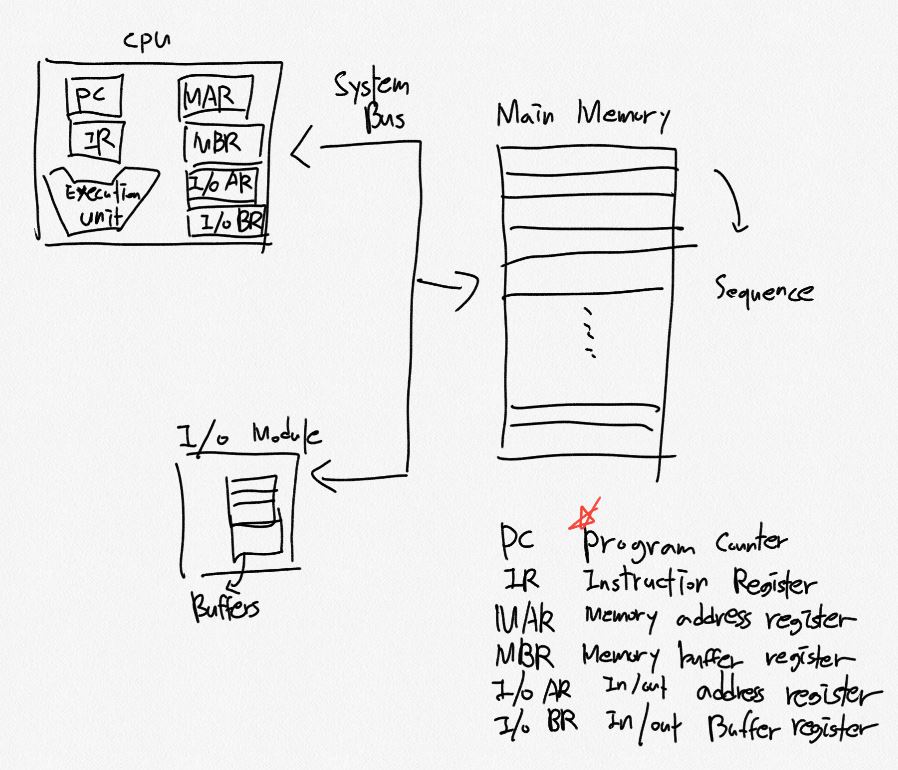 CPU
PC
IR
Execution
unit
MAR
MBR
I/O AR
I/O BR
System
Bus
Main Memory
Sequence
I/O Module
Buffers
PC Program Counter
IR Instruction Register
MAR Memory address register
MBR Memory buffer register
I/O AR In/out address register
I/O BR In/out Buffer register